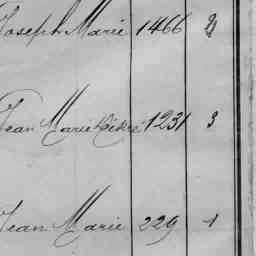 Joseph Marie 1466 2
Jean Marie 1231 3
Jean Marie 229 1